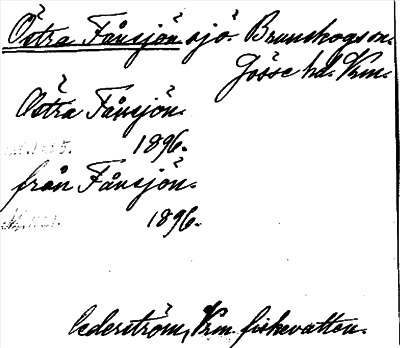 Östra Fånsjön sjö. Brunskogs sn.
Jösse hd. Vrm.
Östra Fånsjön.
1896.
från Fånsjön.
1896.
Cederström, Vrm. fiskevatten.